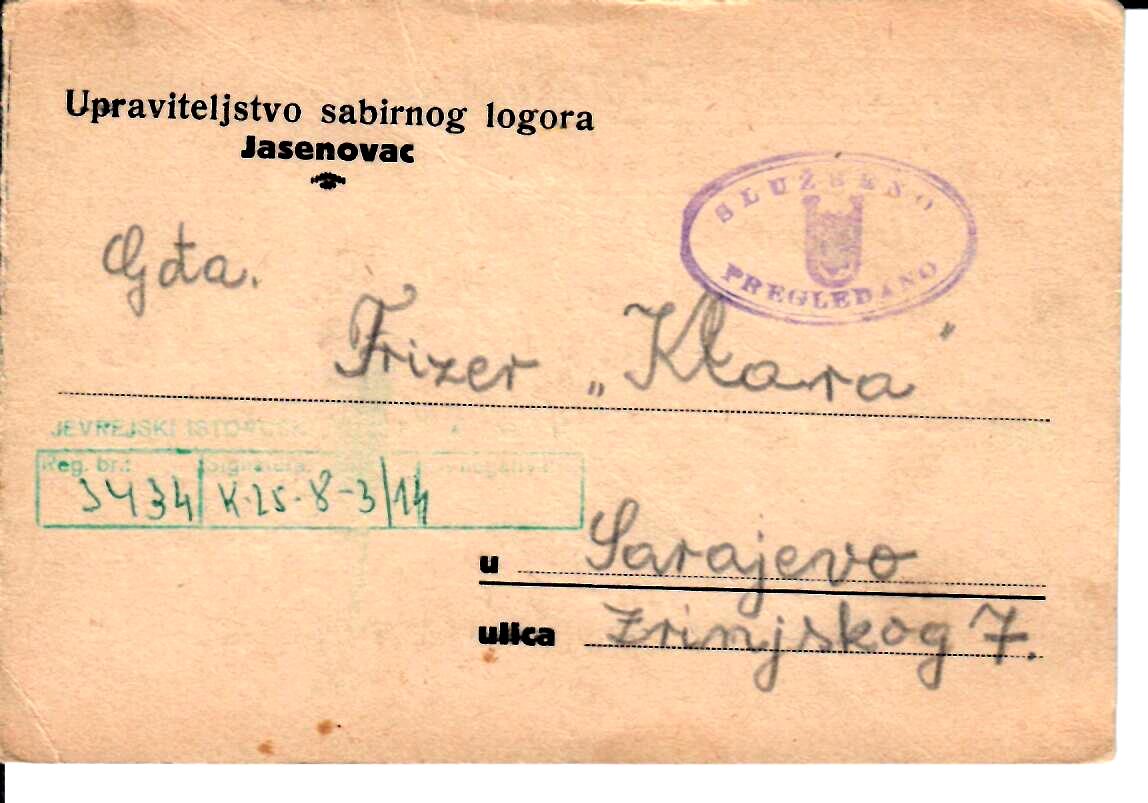 Upraviteljstvo sabirnog logora
Jasenovac
SLUŽBENO
PREGLEDANO
Gđa.
Frizer „Klara"
JEVREJSKI
Reg. br.: Signatura:
3434 K-25-8-3/14
u Sarajevo
ulica Zrinjskog 7.